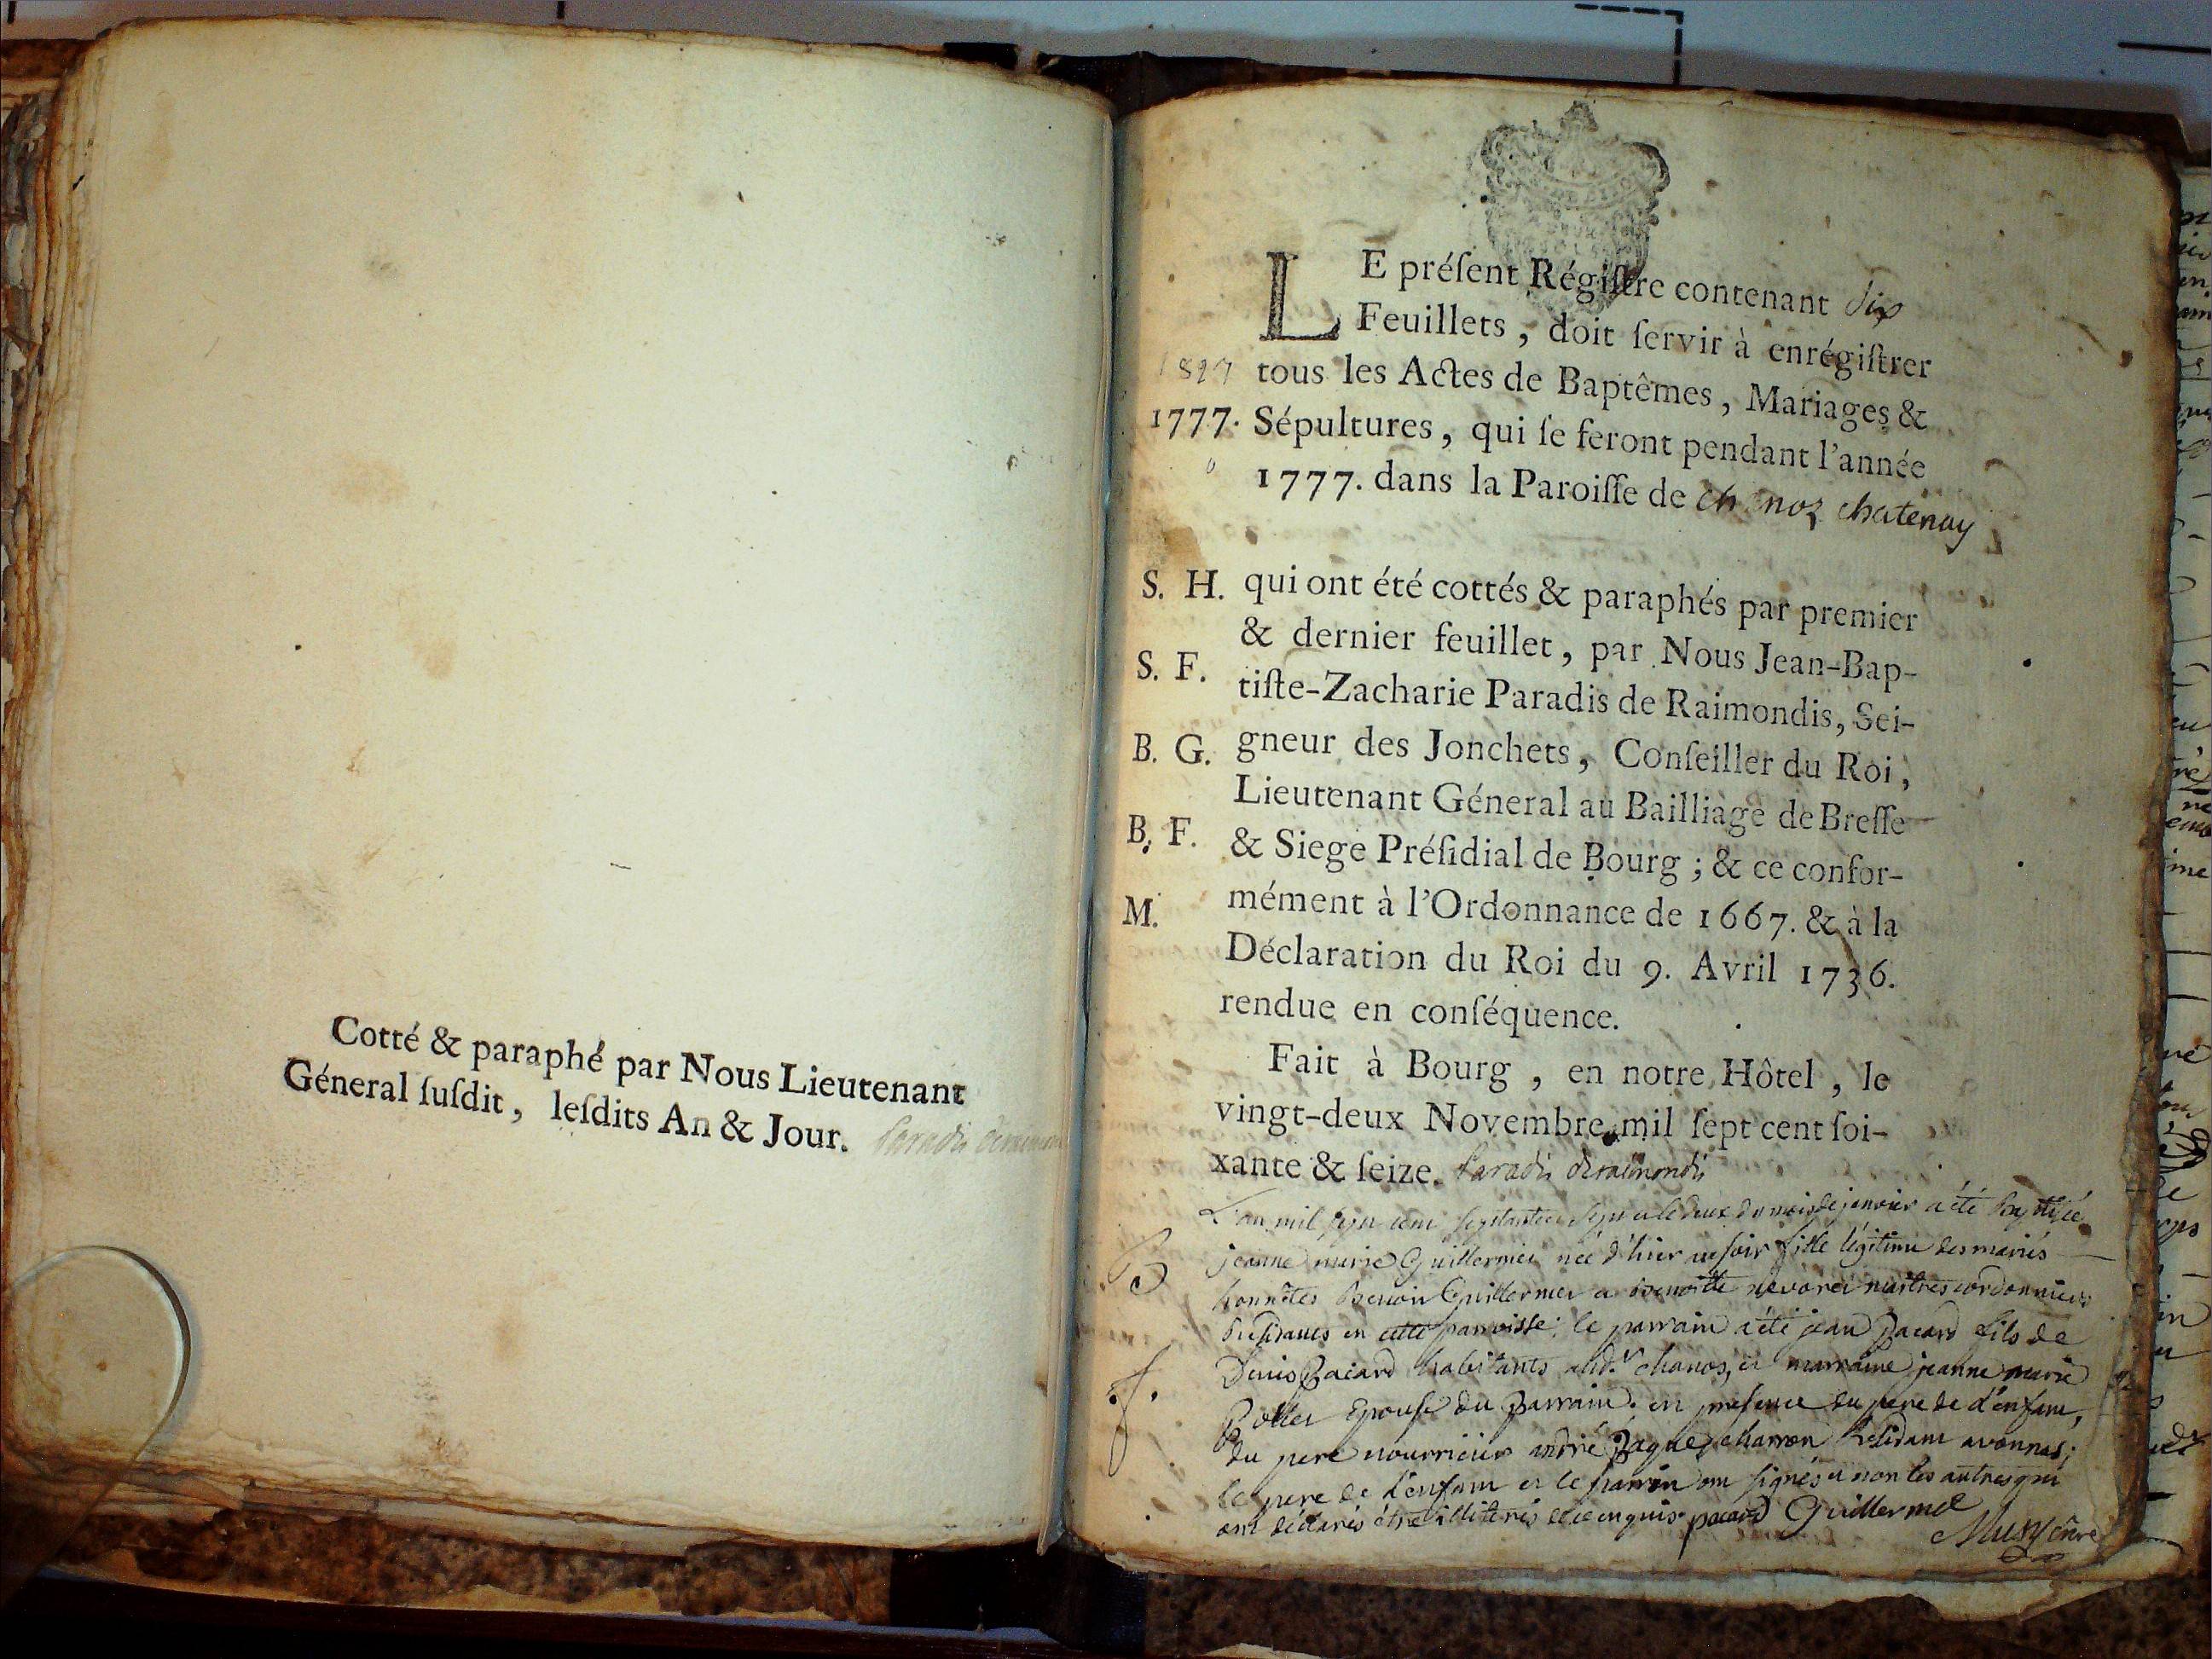 Cotté & paraphé par Nous Lieutenant
Géneral ſuſdit, leſdits An & Jour. Paradis
LE préſent Régiſtre contenant six
Feuillets, doit ſervir à enrégiſtrer
1827 tous les Actes de Baptêmes, Mariages &
1777. Sépultures, qui ſe feront pendant l'année
1777. dans la Paroiſſe de chanoz chatenay
S. H. qui ont été cottés & paraphés par premier
& dernier feuillet, par Nous Jean-Bap-
S. F. tiſte-Zacharie Paradis de Raimondis, Sei-
B. G. gneur des Jonchets, Conſeiller du Roi,
Lieutenant Géneral au Bailliage de Breſſe
B. F. & Siege Préſidial de Bourg ; & ce confor-
M. mément à l'Ordonnance de 1667. & à la
Déclaration du Roi du 9. Avril 1736.
rendue en conſéquence.
Fait à Bourg, en notre Hôtel, le
vingt-deux Novembre mil ſept cent ſoi-
xante & ſeize. Paradis deraimondis
L'an mil sept cent septante sept et le deux du mois de janvier a été baptisée
B jeanne marie Guillermet née d'hier au soir fille légitime des mariés
honnêtes Benoit Guillermet et benoitte maitres cordonniers
Residants en cette parroisse; le parrain a été jean Pacard fils de
f. Denis Pacard habitants aud.t chanos, et marraine jeanne marie
Epouse du Parrain. en presence du pere de l'enfant,
du pere nourricier andré charron Residant a vonnas;
le pere de l'enfant et le parrin ont signés et non les autres qui
ont déclarés être illiterés de ce enquis pacard Guillermet
Musy curé